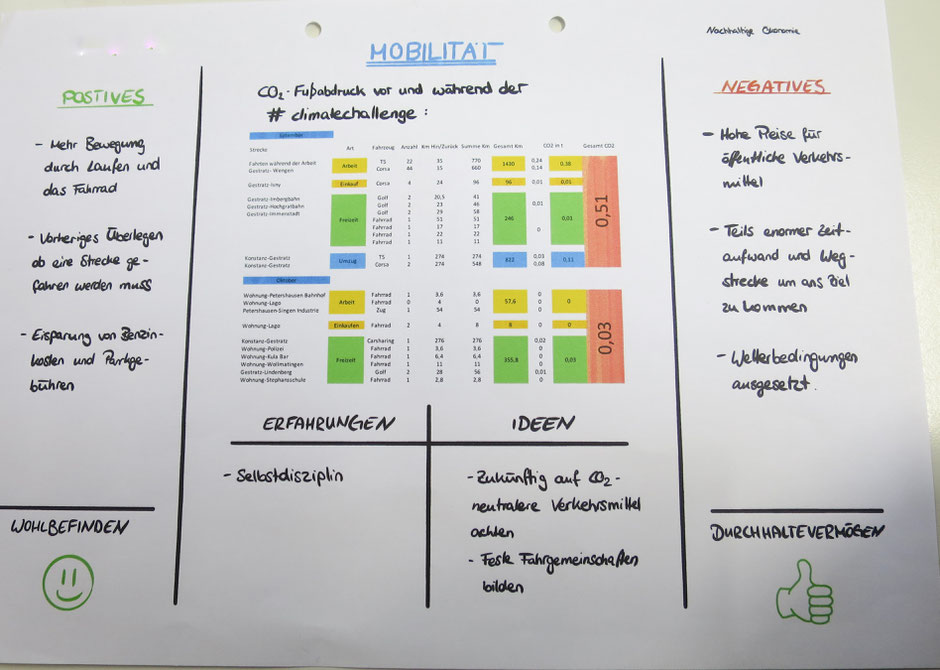 Nachhaltige Ökonomie
MOBILITÄT
POSTIVES
- Mehr Bewegung
durch Laufen und
das Fahrrad
- Vorheriges Überlegen
ob eine Strecke ge-
fahren werden muss
- Eisparung von Benzin-
kosten und Parkge-
bühren
WOHLBEFINDEN
CO2-Fußabdruck vor und während der
# climatechallenge :
September
Strecke Art Fahrzeug Anzahl Km Hin/Zurück Summe Km Gesamt Km CO2 in t Gesamt CO2
Fahrten während der Arbeit Arbeit TS 22 35 770 1430 0,24 0,38 0,51
Gestratz- Wengen Corsa 44 15 660 0,14
Gestratz-Isny Einkauf Corsa 4 24 96 96 0,01 0,01
Gestratz-Imbergbahn Freizeit Golf 2 20,5 41 246 0,01 0,01
Gestratz-Hochgratbahn Golf 2 23 46
Gestratz-Immenstadt Golf 2 29 58
Fahrrad 1 51 51 0
Fahrrad 1 17 17
Fahrrad 1 22 22
Fahrrad 1 11 11
Konstanz-Gestratz Umzug TS 1 274 274 822 0,03 0,11
Konstanz-Gestratz Corsa 2 274 548 0,08
Oktober
Wohnung-Petershausen Bahnhof Arbeit Fahrrad 1 3,6 3,6 57,6 0 0 0,03
Wohnung-Lago Fahrrad 0 4 0 0
Petershausen-Singen Industrie Zug 1 54 54 0
Wohnung-Lago Einkaufen Fahrrad 2 4 8 8 0 0
Konstanz-Gestratz Freizeit Carsharing 1 276 276 355,8 0,02 0,03
Wohnung-Polizei Fahrrad 1 3,6 3,6 0
Wohnung-Kula Bar Fahrrad 1 6,4 6,4 0
Wohnung-Wollmatingen Fahrrad 1 11 11 0
Gestratz-Lindenberg Golf 2 28 56 0,01
Wohnung-Stephansschule Fahrrad 1 2,8 2,8 0
ERFAHRUNGEN
- Selbstdisziplin
IDEEN
- Zukünftig auf CO2-
neutralere Verkehrsmittel
achten
- Feste Fahrgemeinschaften
bilden
NEGATIVES
- Hohe Preise für
öffentliche Verkehrs-
mittel
- Teils enormer Zeit-
aufwand und Weg-
strecke um ans Ziel
zu kommen
- Wetterbedingungen
ausgesetzt.
DURCHHALTEVERMÖGEN